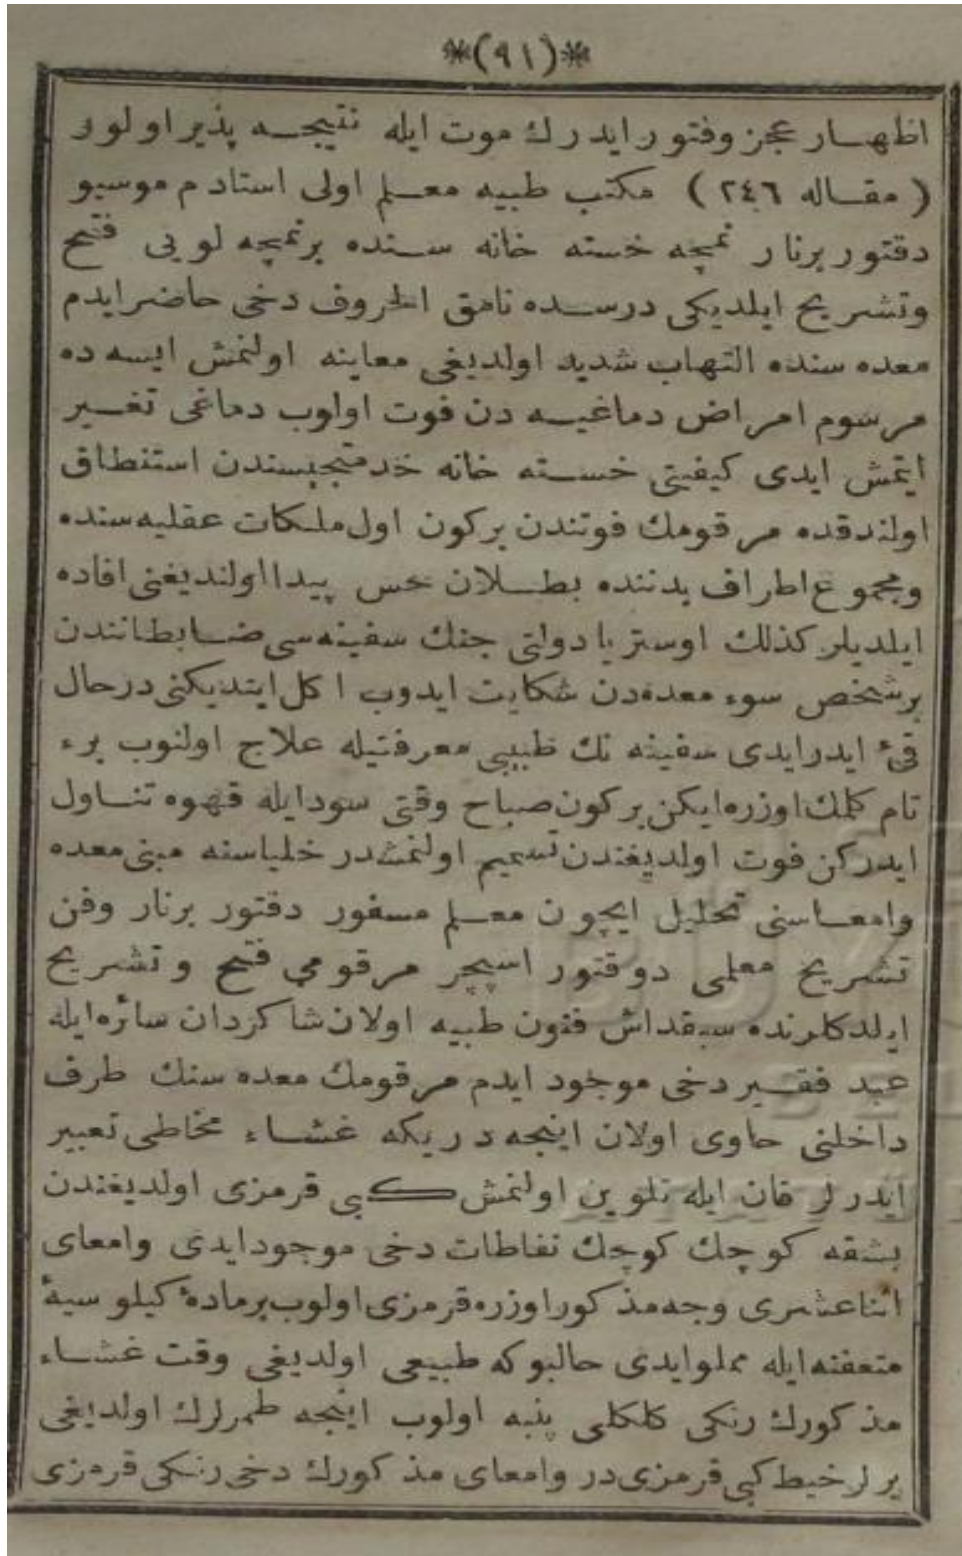 *(٩١)*
اظهار عجز وفتور ايدرك موت ايله نتيجه پذير اولور
( مقاله ٢٤٦ ) مكتب طبيه معلم اولى استادم موسيو
دقتور برنار نمچه خسته خانه سنده بر نمچه لويى فتح
وتشريح ايلديكى درسده نامق الحروف دخى حاضر ايدم
معده سنده التهاب شديد اولديغى معاينه اولنمش ايسه ده
مرسوم امراض دماغيه دن فوت اولوب دماغى تغير
ايتمش ايدى كيفيتى خسته خانه خدمتجيسندن استنطاق
اولندقده مرقومك فوتندن بر كون اول ملكات عقليه سنده
ومجموع اطراف بدننده بطلان حس پيدا اولنديغنى افاده
ايلديلر كذلك اوستريا دولتى جنك سفينه سى ضابطانندن
بر شخص سوء معده دن شكايت ايدوب اكل ايتديكنى درحال
قئ ايدر ايدى سفينه نك طبيبى معرفتيله علاج اولنوب برء
تام كلمك اوزره ايكن بر كون صباح وقتى سود ايله قهوه تناول
ايدركن فوت اولديغندن تسميم اولنمشدر خلياسنه مبنى معده
وامعاسنى تحليل ايچون معلم مسفور دقتور برنار وفن
تشريح معلمى دوقتور اسپچر مرقومى فتح وتشريح
ايلدكلرنده سبقداش فنون طبيه اولان شاكردان سائره ايله
عبد فقير دخى موجود ايدم مرقومك معده سنك طرف
داخلنى حاوى اولان اينجه دريكه غشاء مخاطى تعبير
ايدرلر قان ايله تلوين اولنمش كبى قرمزى اولديغندن
بشقه كوچك كوچك نفاطات دخى موجود ايدى وامعاى
اثناعشرى وجه مذكور اوزره قرمزى اولوب بر مادۀ كيلوسيۀ
متعفنه ايله مملو ايدى حالبوكه طبيعى اولديغى وقت غشاء
مذكورك رنكى كلكلى پنبه اولوب اينجه طمرلرك اولديغى
يرلر خيط كبى قرمزى در وامعاى مذكورك دخى رنكى قرمزى